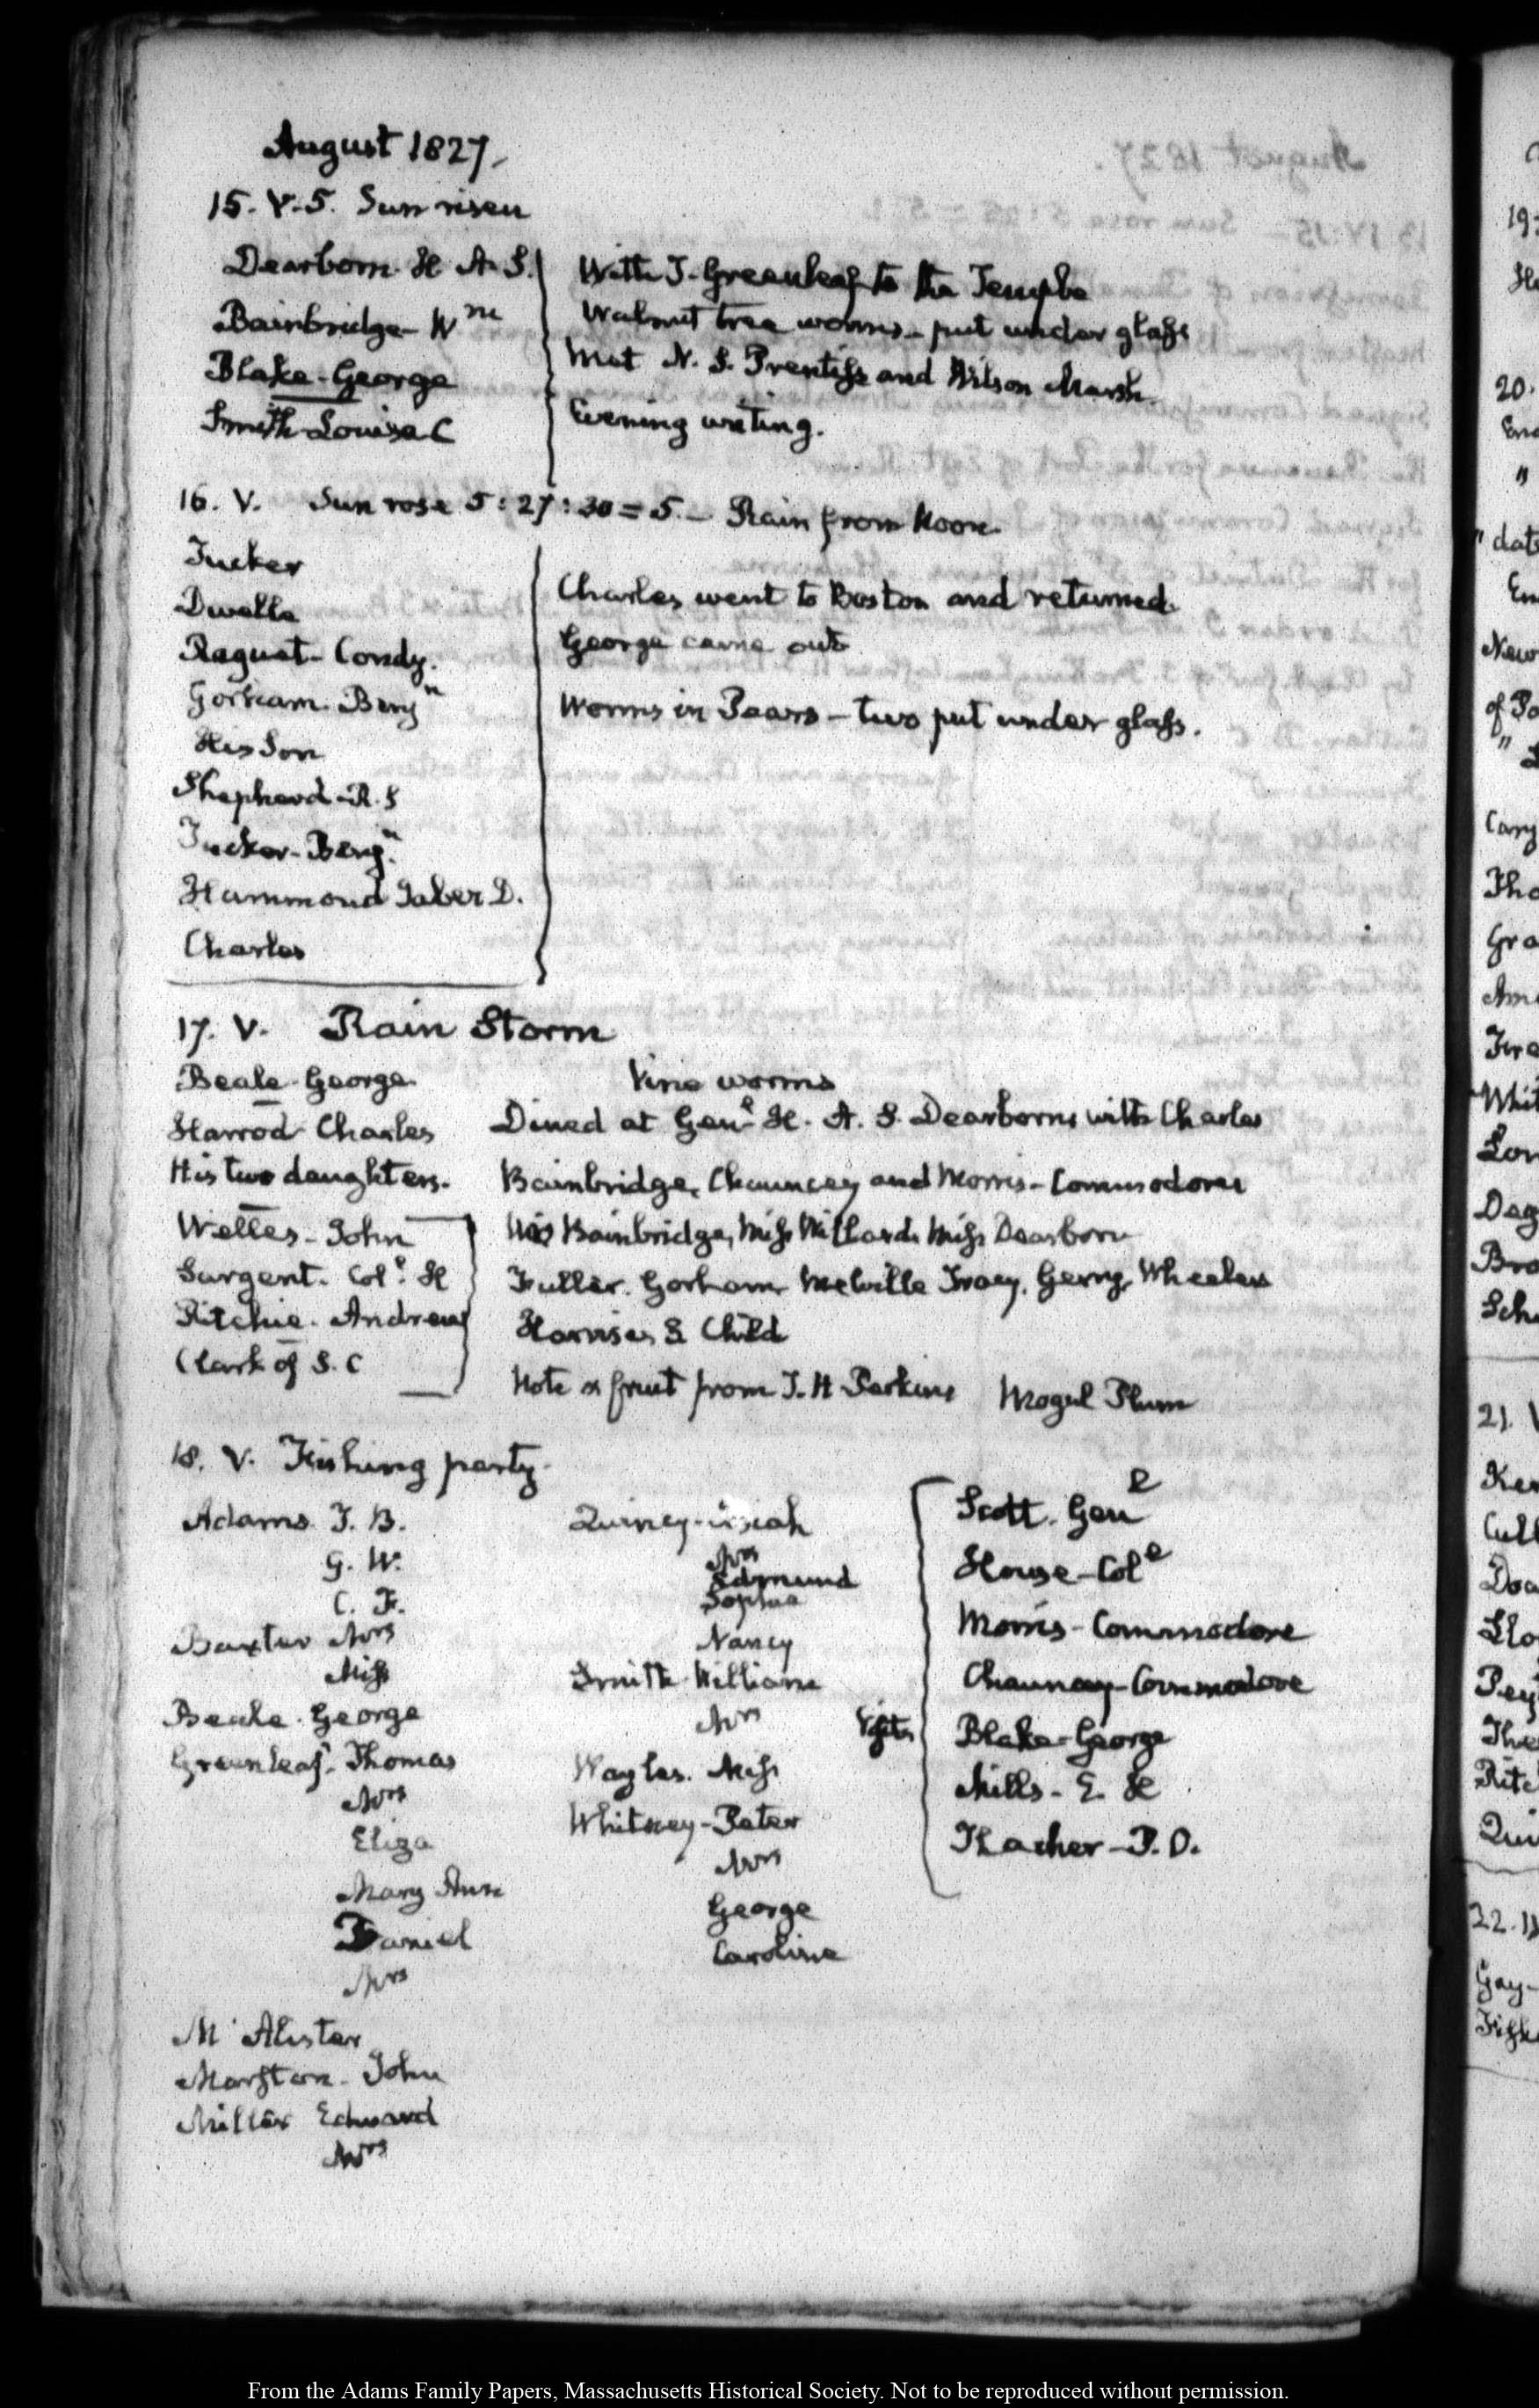 August 1827.
15. V.5. Sun risen
Dearborn H A. S.
Bainbridge - Wm
Blake - George
Smith Louisa C
With T. Greenleaf to the Temple
Walnut tree worms - put under glass
Met N. S. Prentiss and Wilson Marsh.
Evening writing.
16. V. Sun rose 5:27:30 = 5. - Rain from Noon.
Tucker
Dwelle
Raguet - Condy.
Gorham Benjn
His Son
Shepherd - R. S
Tucker - Benjn
Hammond Jaber D.
Charles
Charles went to Boston and returned.
George came out
Worms in Pears - two put under glass.
17. V. Rain Storm
Beale - George
Harrod Charles
His two daughters.
Welles - John
Sargent. Coll. H
Ritchie - Andrew
Clark of S. C
Vine worms
Dined at Genl H. A. S. Dearborns with Charles
Bainbridge, Chauncey and Morris - Commodores
Bainbridge, Miss Willard, Miss Dearborn
Fuller. Gorham Melville Tracy, Gerry, Wheeler
Harrises & Child
Note & fruit from T. H Perkins Mogul Plum
18. V. Fishing party.
Adams T. B.
G. W.
C. F.
Baxter Mrs
Miss
Beale - George
Greenleaf - Thomas
Mrs
Eliza
Mary Ann
Daniel
Mrs
M'Alister
Marston - John
Miller Edward
Mrs
Quincy - Josiah
Mrs
Edmund
Sophia
Nancy
Smith William
Mrs
Wayles. Miss
Whitney - Peter
Mrs
George
Caroline
Scott. Genl
House - Coll
Morris - Commodore
Chauncey - Commodore
Blake - George
Mills - E. H
Thacher - P. O.
From the Adams Family Papers, Massachusetts Historical Society. Not to be reproduced without permission.